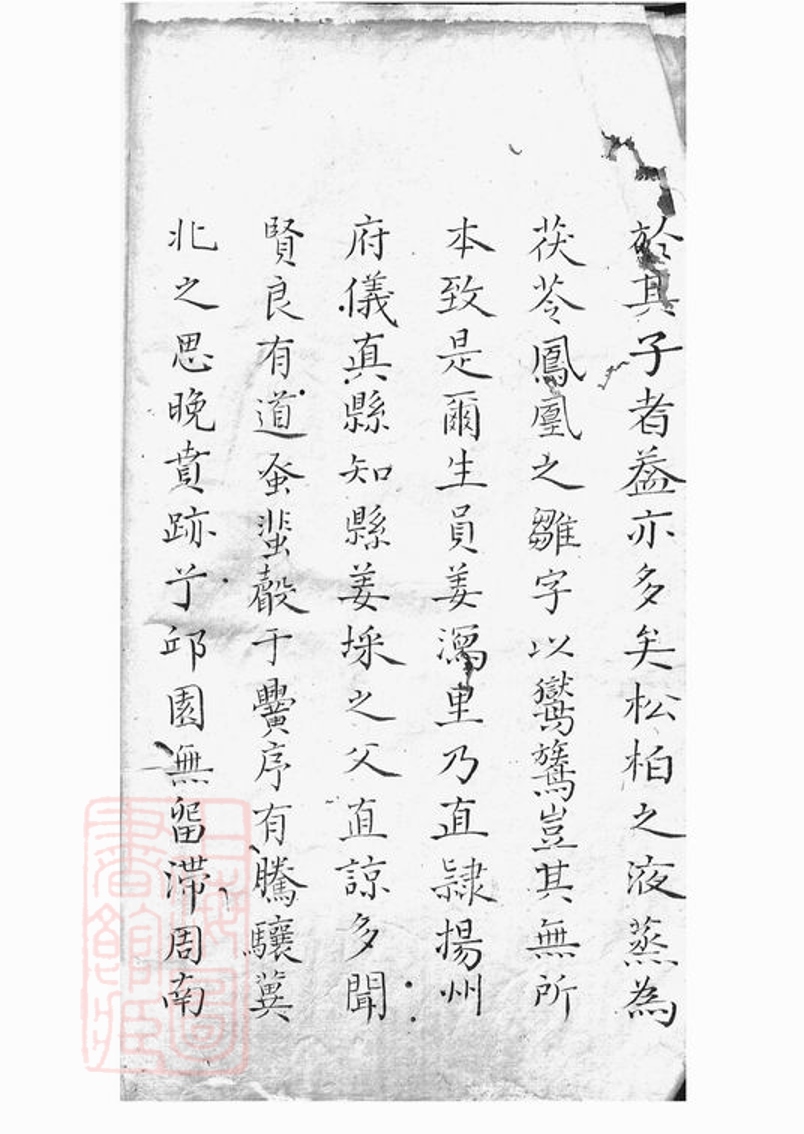 於其子者益亦多矣松柏之液蒸為
茯苓鳳凰之雛字以鸑鷟豈其無所
本致是爾生員姜瀉里乃直隷揚州
府儀真縣知縣姜埰之父直諒多聞
賢良有道蚤蜚轂于黌序有騰驤兾
北之思晚賁跡丅邱園無畱滯周南
上海圖書館藏